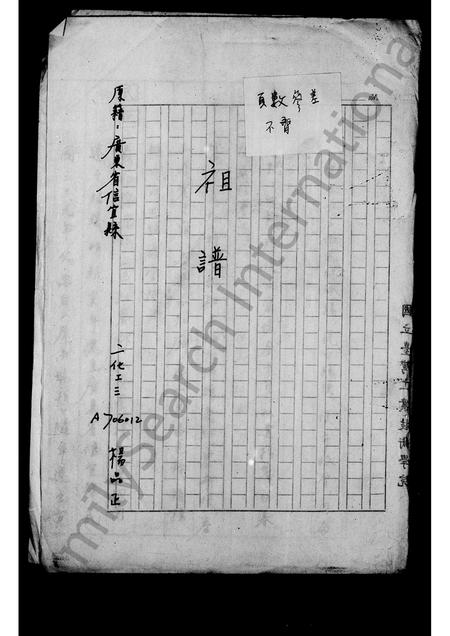 頁數參差
不齊
祖
譜
原籍：廣東省信宜縣
二化工三
A706012
楊品正
國立臺灣工業技術學院
FamilySearch International